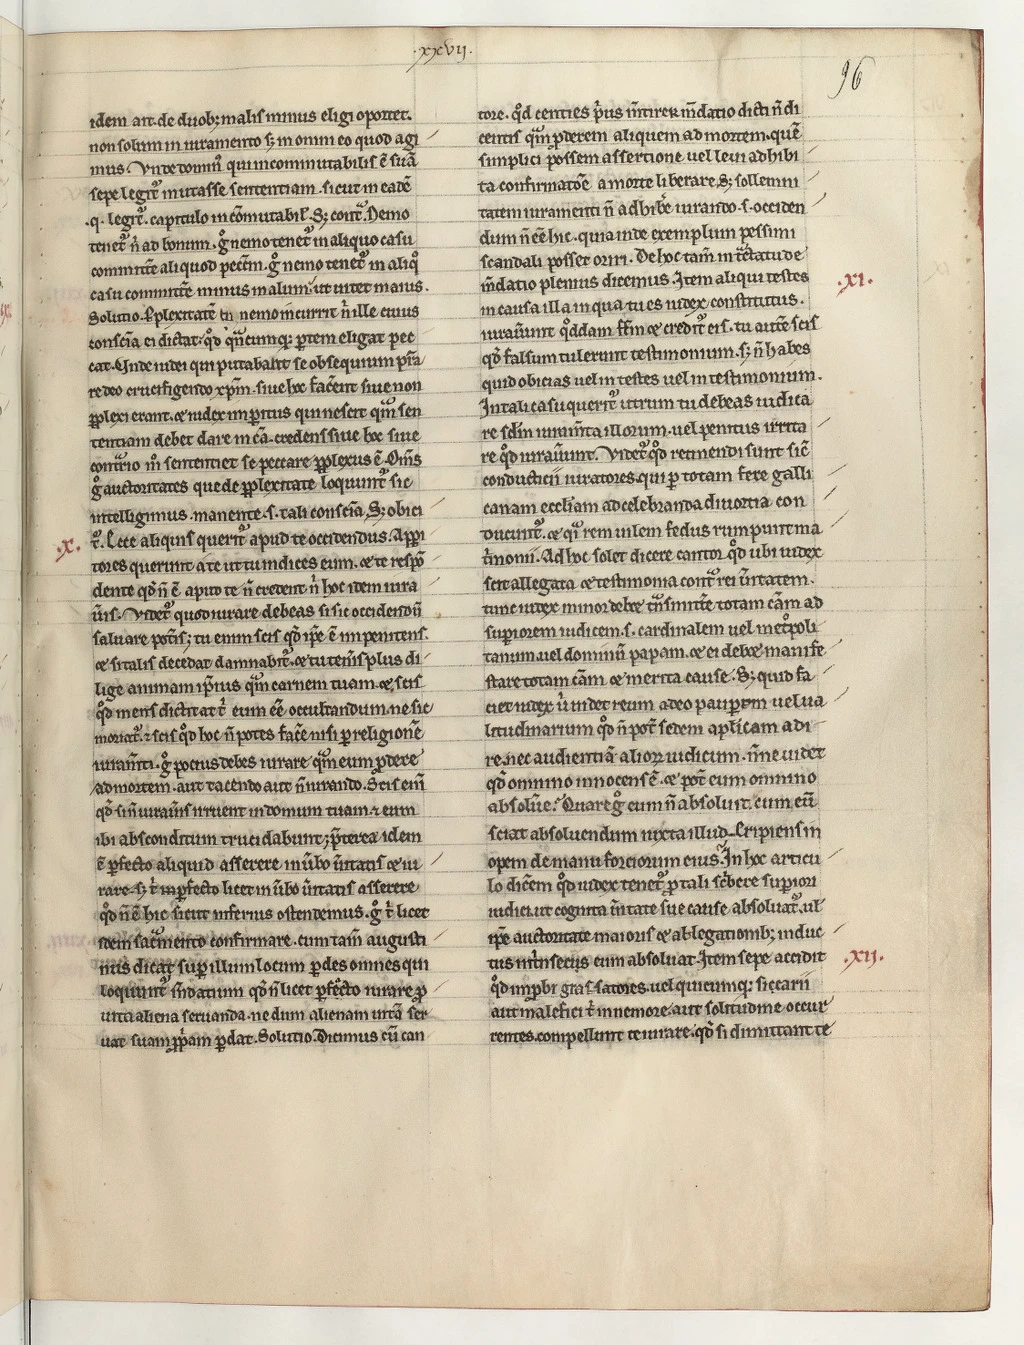 .xxvij.
96
idem ait. de duobꝫ malis minus eligi oportet.
non solum in iuramento sꝫ in omni eo quod agi
mus. Vnde dominꝰ qui incommutabilis ē suā
sepe legit᷑ mutasse sententiam. sicut in eadē
.q. legit᷑. capitulo incōmutabil'. Sꝫ cont᷑. Nemo
tenet᷑ n̄ ad bonum. gͦ nemo tenet᷑ in aliquo casu
committe aliquod pecc̄m. gͦ nemo tenet᷑ in aliqͦ
casu committe minus malum ut uitet maius.
Solutio. Ꝑplexitatē nemo incurrit n̄ ille cuius
consc̄ia ei dictat. qd̓ q̄cumqꝫ ꝑtem eligat pec
cat. Unde iudei qui putabant se obsequium p̄sta
re deo crucifigendo xp̄m. siue hoc facerent siue non
ꝑplexi erant. et iudex imperitus qui nescit q̄m sen
tentiam debet dare in cā. credens siue hoc siue
contrario mͦ sentientiet se peccare ꝑplexus ē. Om̄s
gͦ auctoritates que de ꝑplexitate loquunt᷑ sic
intelligimus. manente .s. tali consc̄ia. Sꝫ obici
.x.
t᷑. Ecce aliquis querit᷑ apud te occidendus. Appi
tores querunt a te ut tu indices eum. et te respō
dente qd̓ n̄ ē apud te n̄ credent n̄ hoc idem iura
ũis. Videt᷑ quod iurare debeas si sic occidendū
saluare potes. tu enim scis qd̓ ip̄e ē impenitens.
et si talis decedat damnabit᷑. et tu teneris plus di
lige animam ip̄ius q̄m carnem tuam. et scis
qd̓ mens dictitat t᷑ eum eē occultandum. ne sic
moriat᷑. ⁊ scis qd̓ hoc n̄ potes fac̄e nisi ꝑ religionē
iuram̄ti. gͦ pocius debes iurare q̄m eum ꝓdere
ad mortem. aut tacendo aut n̄ iurando. Scis enī
qd̓ si n̄ iuraũis irruent in domum tuam ⁊ eum
ibi absconditum trucidabunt. p̄terea idem
ē ꝑfecto aliquid asserere in ũbo ũitatis et iu
rare. sꝫ t᷑ imꝑfecto licet in ũbo ũitatis asserere
qd̓ n̄ ē hic sicut inferius ostendemus. gͦ t᷑ licet
idem sac̄mento confirmare. cum tam̄ augusti
nus dicat super illum locum ꝑdes omnes qui
loquunt᷑ m̄datium qd̓ n̄ licet ꝑfecto iurare ꝓ
uita aliena seruanda. ne dum alienam uitā ser
uat suam ꝓp̄am ꝑdat. Solutio. Dicimus cū can
tore. qd̓ centies p̄us m̄tirer m̄datio dicti n̄ di
centis q̄m ꝓderem aliquem ad mortem. quē
simplici possem assertione uel leui adhibi
ta confirmatōe a morte liberare. Sꝫ sollemni
tatem iuramenti n̄ adhib̄e iurando .s. occiden
dum n̄ eē hic. quia inde exemplum pessimi
scandali posset oriri. De hoc tam̄ in t᷑ctatu de
m̄datio plenius dicemus. Item aliqui testes
.xi.
in causa illa in qua tu es iudex constitutus.
iurauerunt qd̓dam fm̄ et credit᷑ eis. tu autē scis
qd̓ falsum tulerunt testimonium. sꝫ n̄ habes
quid obicias uel in testes uel in testimonium.
In tali casu querit᷑ utrum tu debeas iudica
re sc̄dm iuram̄ta illorum. uel penitus irrita
re qd̓ iurauerunt. Videt᷑ qd̓ retinendi sunt sic̄
conducticii iuratores. qui ꝑ totam fere galli
canam eccl̄iam ad celebranda diuortia con
ducunt᷑. et q̄si rem uilem fedus rumpunt ma
t᷑monii. Ad hoc solet dicere cantor qd̓ ubi iudex
scit allegata et testimonia cont᷑ rei ũitatem.
tunc iudex minor debet t᷑nsmitte totam cām ad
superiorem iudicem .s. cardinalem uel metͦpoli
tanum. uel dominū papam. et ei debet manife
stare totam cām et merita cause. Sꝫ quid fa
ciet iudex ũ uidet reum adeo pauperem uel ua
litudinarium qd̓ n̄ pot̄ sedem aplicam adi
re. nec audientiā alioꝝ iudicum. n̄ne uidet
qd̓ omnino innocens ē. et pot̄ eum omnino
absolũe. Quare gͦ eum n̄ absoluit. cum eū
sciat absoluendum iuxta illud. Eripiens in
opem de manu forciorum eius. In hoc articu
lo dicēm qd̓ iudex tenet᷑ ꝓ tali sc̄bere superiori
iudici. ut cognita ũitate sue cause absoluat᷑. ul'
ip̄e auctoritate maioris et ablegationibꝫ induc
tus int᷑nsecus eum absoluat. Item sepe accidit
.xij.
qd̓ imꝓbi grassatores. uel quicumqꝫ siccarii
aut malefici t᷑ in nemore. aut solitudine occur
rentes. compellunt te iurare. qd̓ si dimittant te